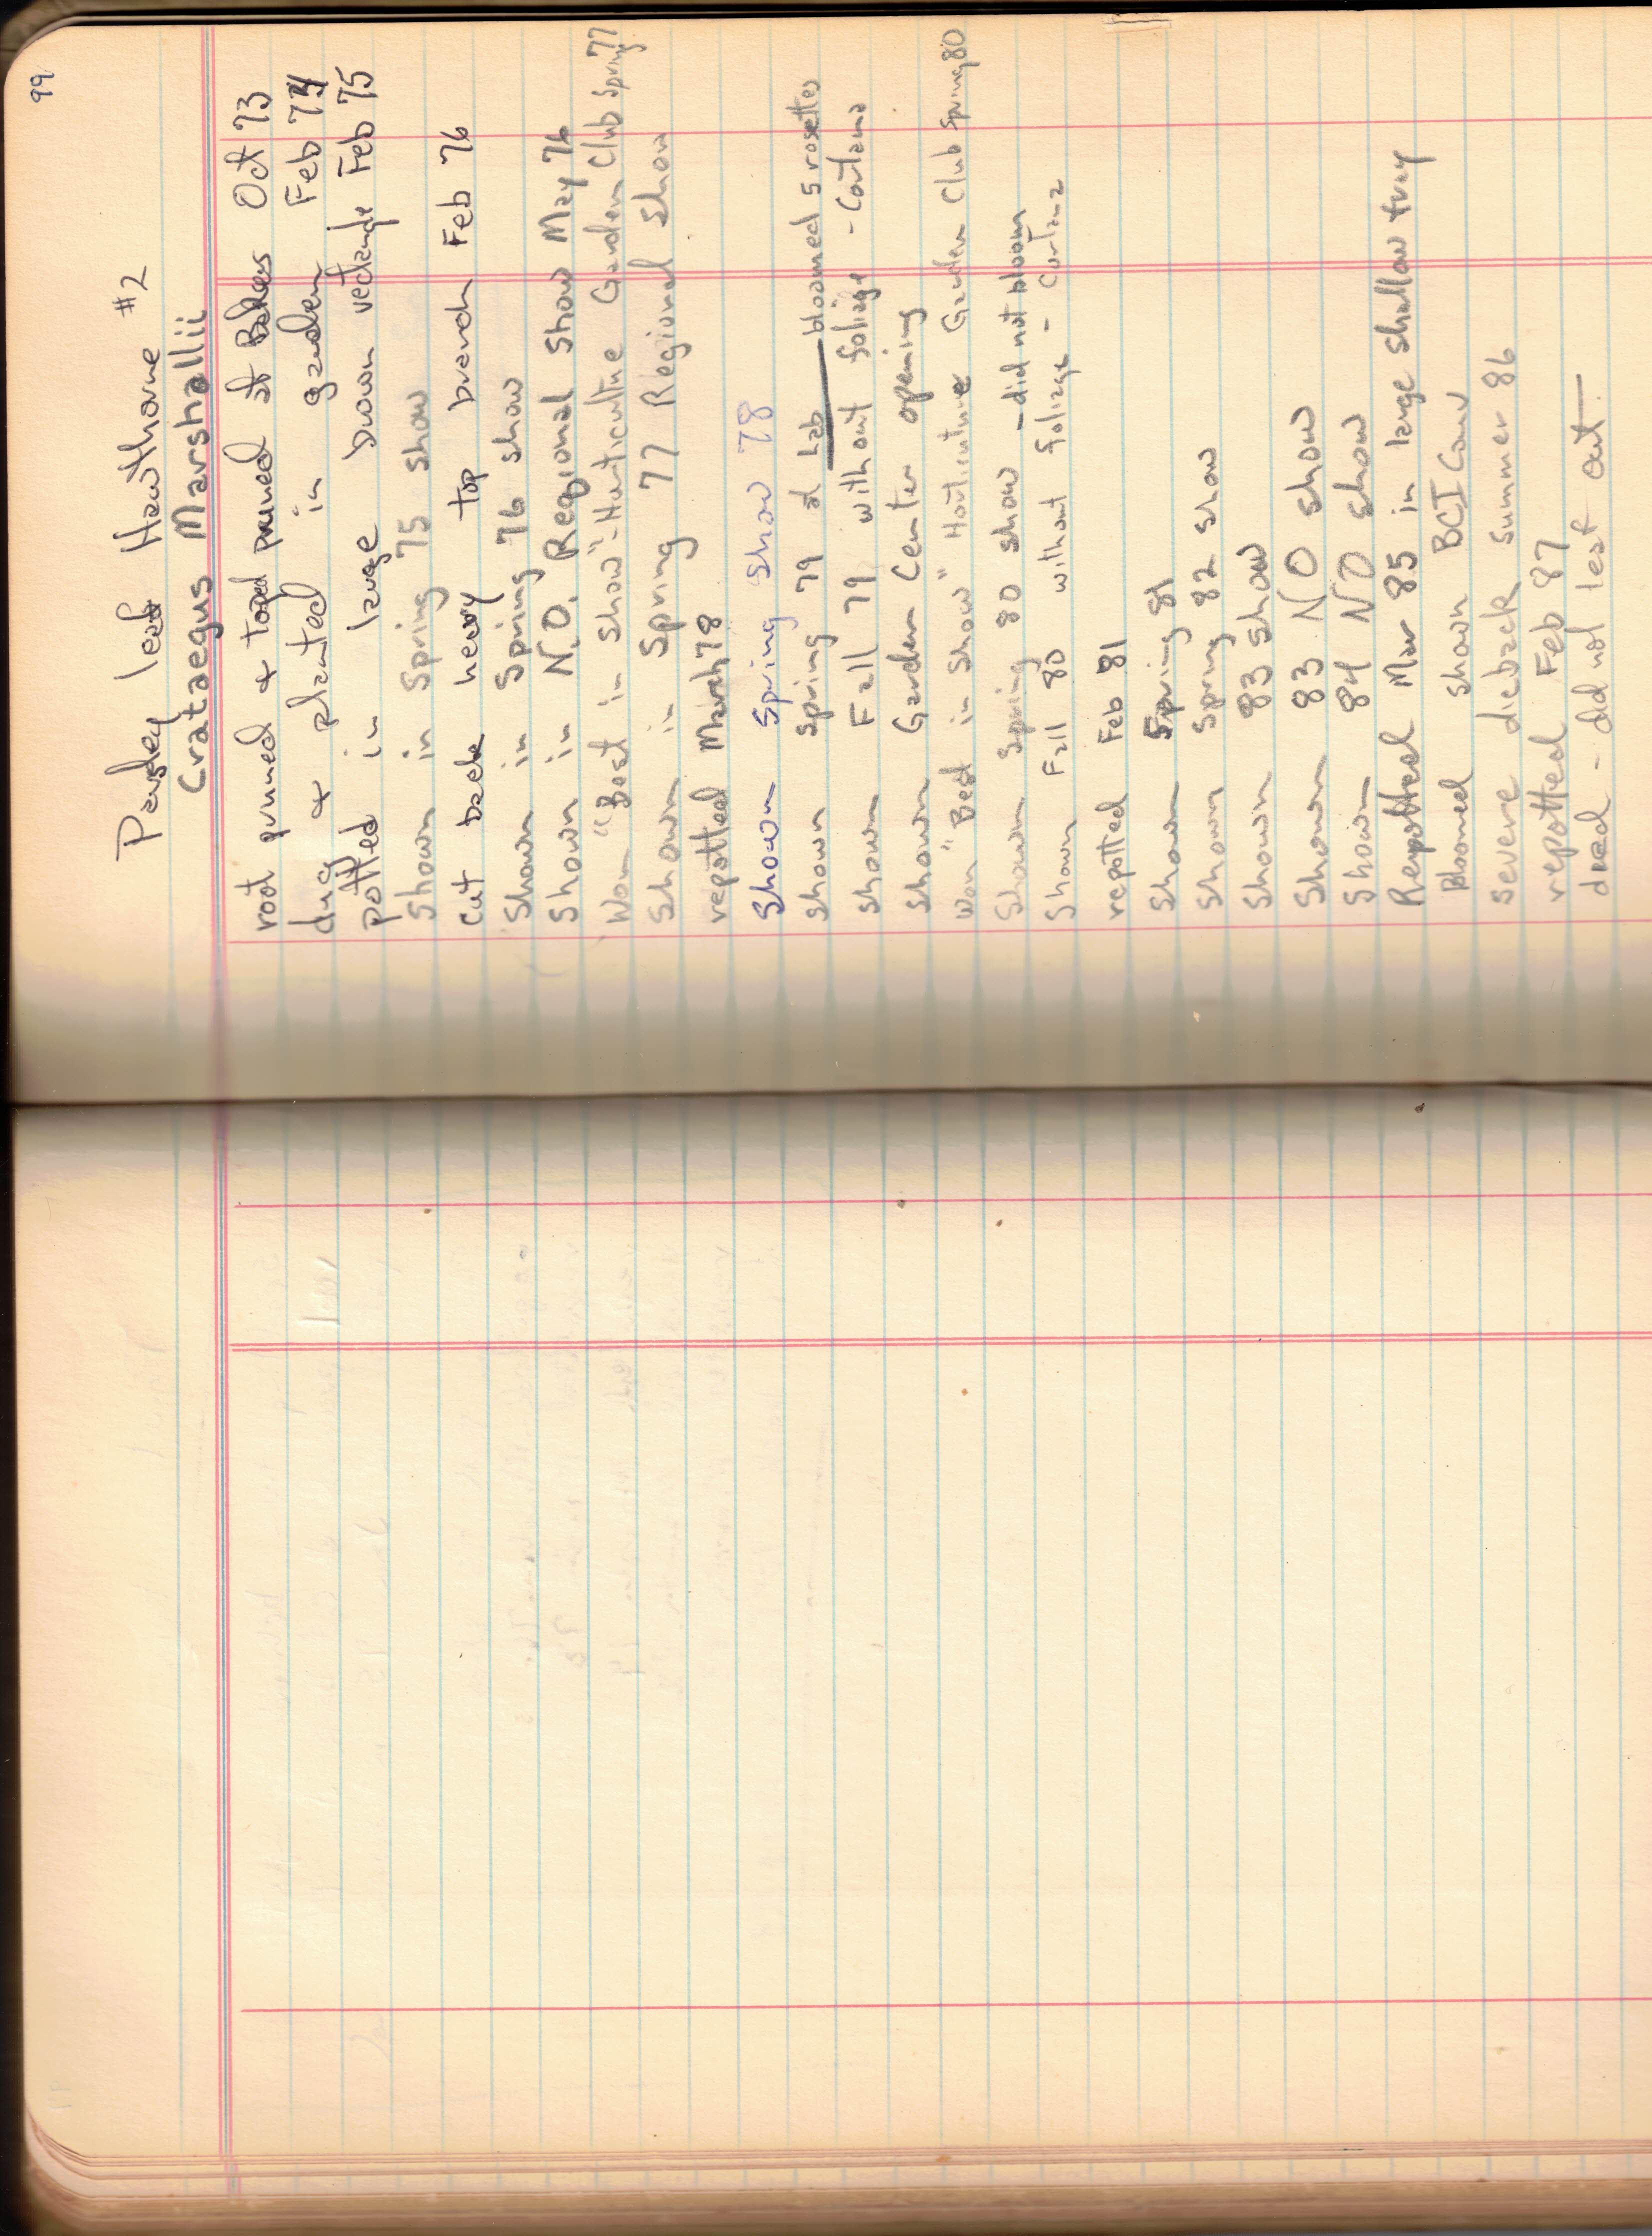 99
Parsley leaf Hawthorne #2
Crataegus Marshallii
root pruned & toped pruned at Bakers Oct 73
dug & planted in garden Feb 74
potted in large brown rectangle Feb 75
Shown in Spring 75 show
Cut back heavy top branch Feb 76
Shown in Spring 76 show
Shown in N.O. Regional Show May 76
Won "Best in Show" - Horticulture Garden Club Spring 77
Shown in Spring 77 Regional Show
repotted March 78
Shown Spring Show 78
shown Spring 79 at Lab bloomed 5 rosettes
shown Fall 79 without foliage - Cortana
shown Garden Center opening
Won "Best in Show" Horticulture Garden Club Spring 80
Shown Spring 80 show - did not bloom
Shown Fall 80 without foliage - Cortana
repotted Feb 81
Shown Spring 81
Shown Spring 82 Show
Shown 83 show
Shown 83 NO show
Shown 84 NO show
Repotted Mar 85 in large shallow tray
Bloomed shown BCI Conv
severe dieback summer 86
repotted Feb 87
dead - did not leaf out.